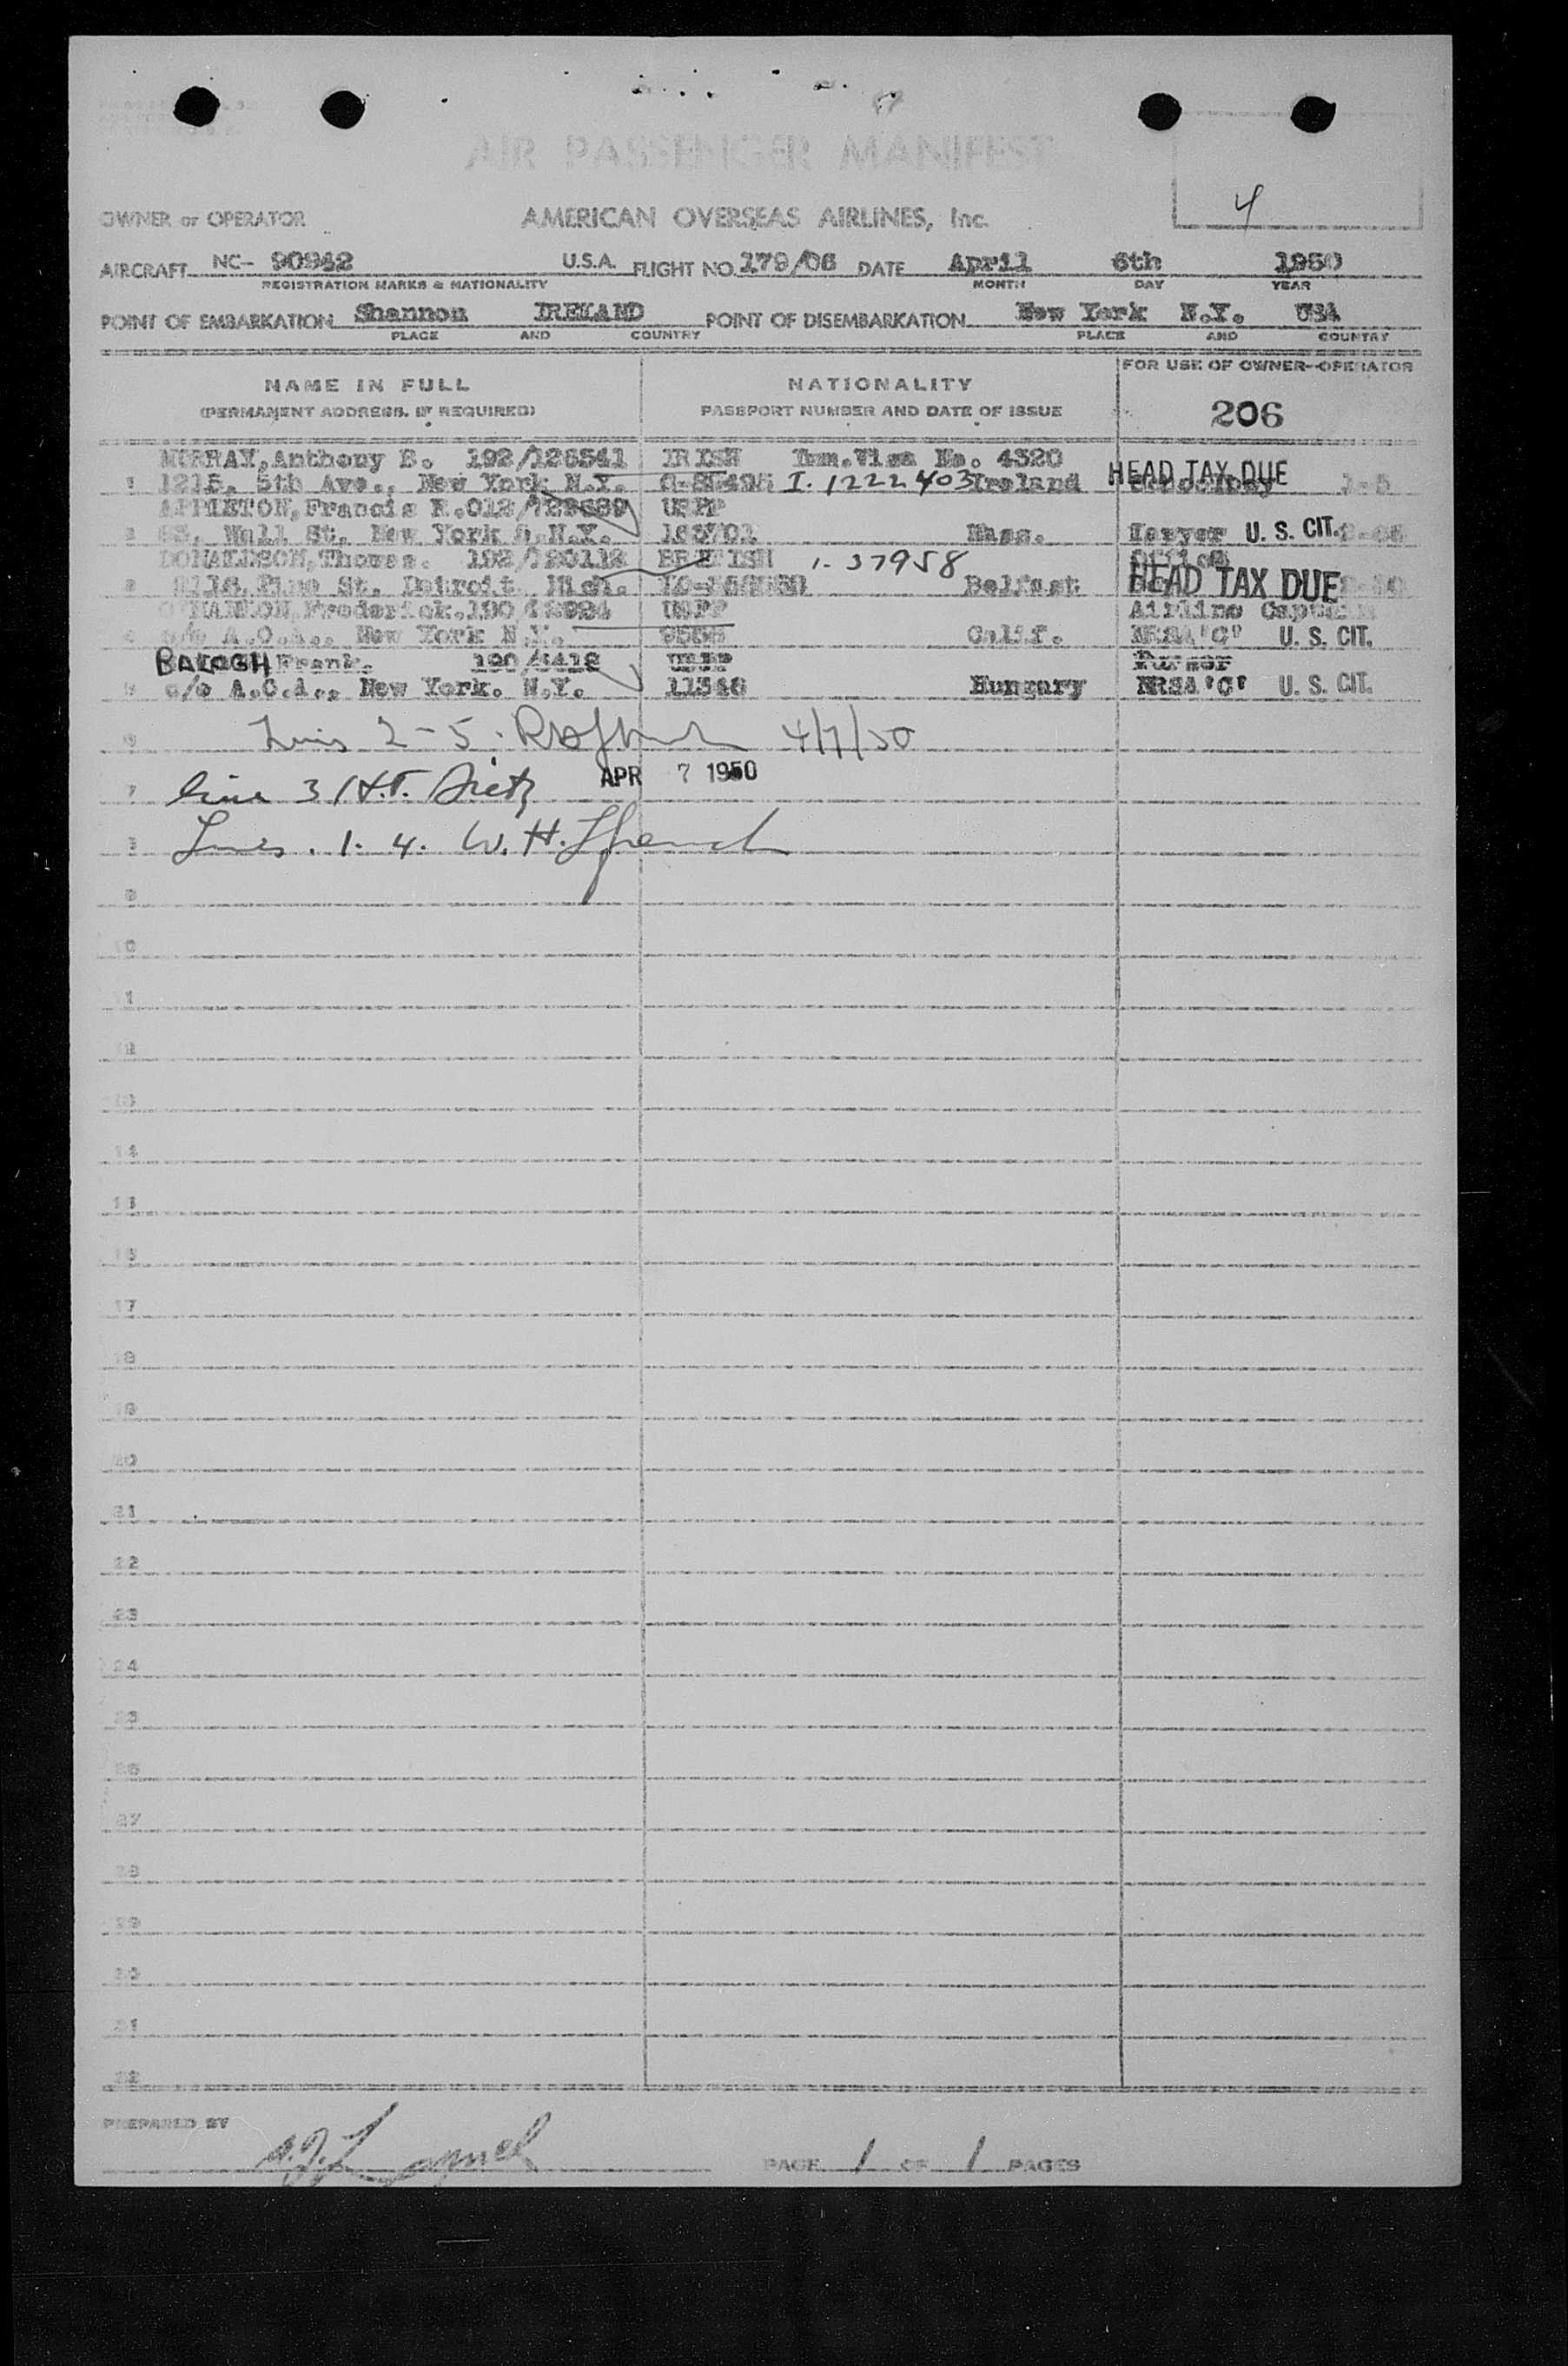 AIR PASSENGER MANIFEST
4
OWNER or OPERATOR AMERICAN OVERSEAS AIRLINES, Inc.
AIRCRAFT NC- 90942 U.S.A. FLIGHT NO. 179/06 DATE April 6th 1950
REGISTRATION MARKS & NATIONALITY MONTH DAY YEAR
POINT OF EMBARKATION Shannon IRELAND POINT OF DISEMBARKATION New York N.Y. USA
PLACE AND COUNTRY PLACE AND COUNTRY
NAME IN FULL NATIONALITY FOR USE OF OWNER-OPERATOR
(PERMANENT ADDRESS, IF REQUIRED) PASSPORT NUMBER AND DATE OF ISSUE 206
MURRAY, Anthony B. 192/126541 IRISH Imm.Visa No. 4320
1 1215, 5th Ave., New York N.Y. I. 1222403 Ireland HEAD TAX DUE
APPLETON, Francis R. USPP
2 Wall St. New York N.Y. Mass. Lawyer U. S. CIT.
DONALDSON, Thomas. BRITISH 1. 37958
3 Pine St. Detroit Mich. Belfast HEAD TAX DUE
O'HANLON, Frederick. USPP Airline Captain
4 c/o A.O.A., New York N.Y. Calif. NRSA'C' U. S. CIT.
BALOGH Frank. 190/ USPP Purser
5 c/o A.O.A., New York. N.Y. 11346 Hungary NRSA'C' U. S. CIT.
6 2-5. 4/7/50
APR 7 1950
7 line 3 H.T. Dietz
8 Lines. 1. 4. W. H.
9
10
11
12
13
14
15
16
17
18
19
20
21
22
23
24
25
26
27
28
29
30
31
32
PREPARED BY
PAGE 1 OF 1 PAGES